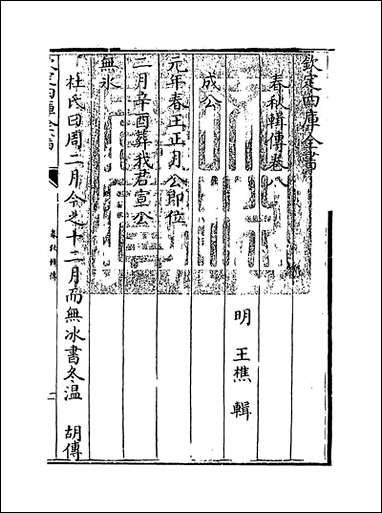 欽定四庫全書
春秋輯傳卷八
明 王樵 輯
成公
元年春王正月公即位
二月辛酉葬我君宣公
無冰
杜氏曰周二月今之十二月而無冰書冬溫 胡傳
欽定四庫全書
春秋輯傳
一